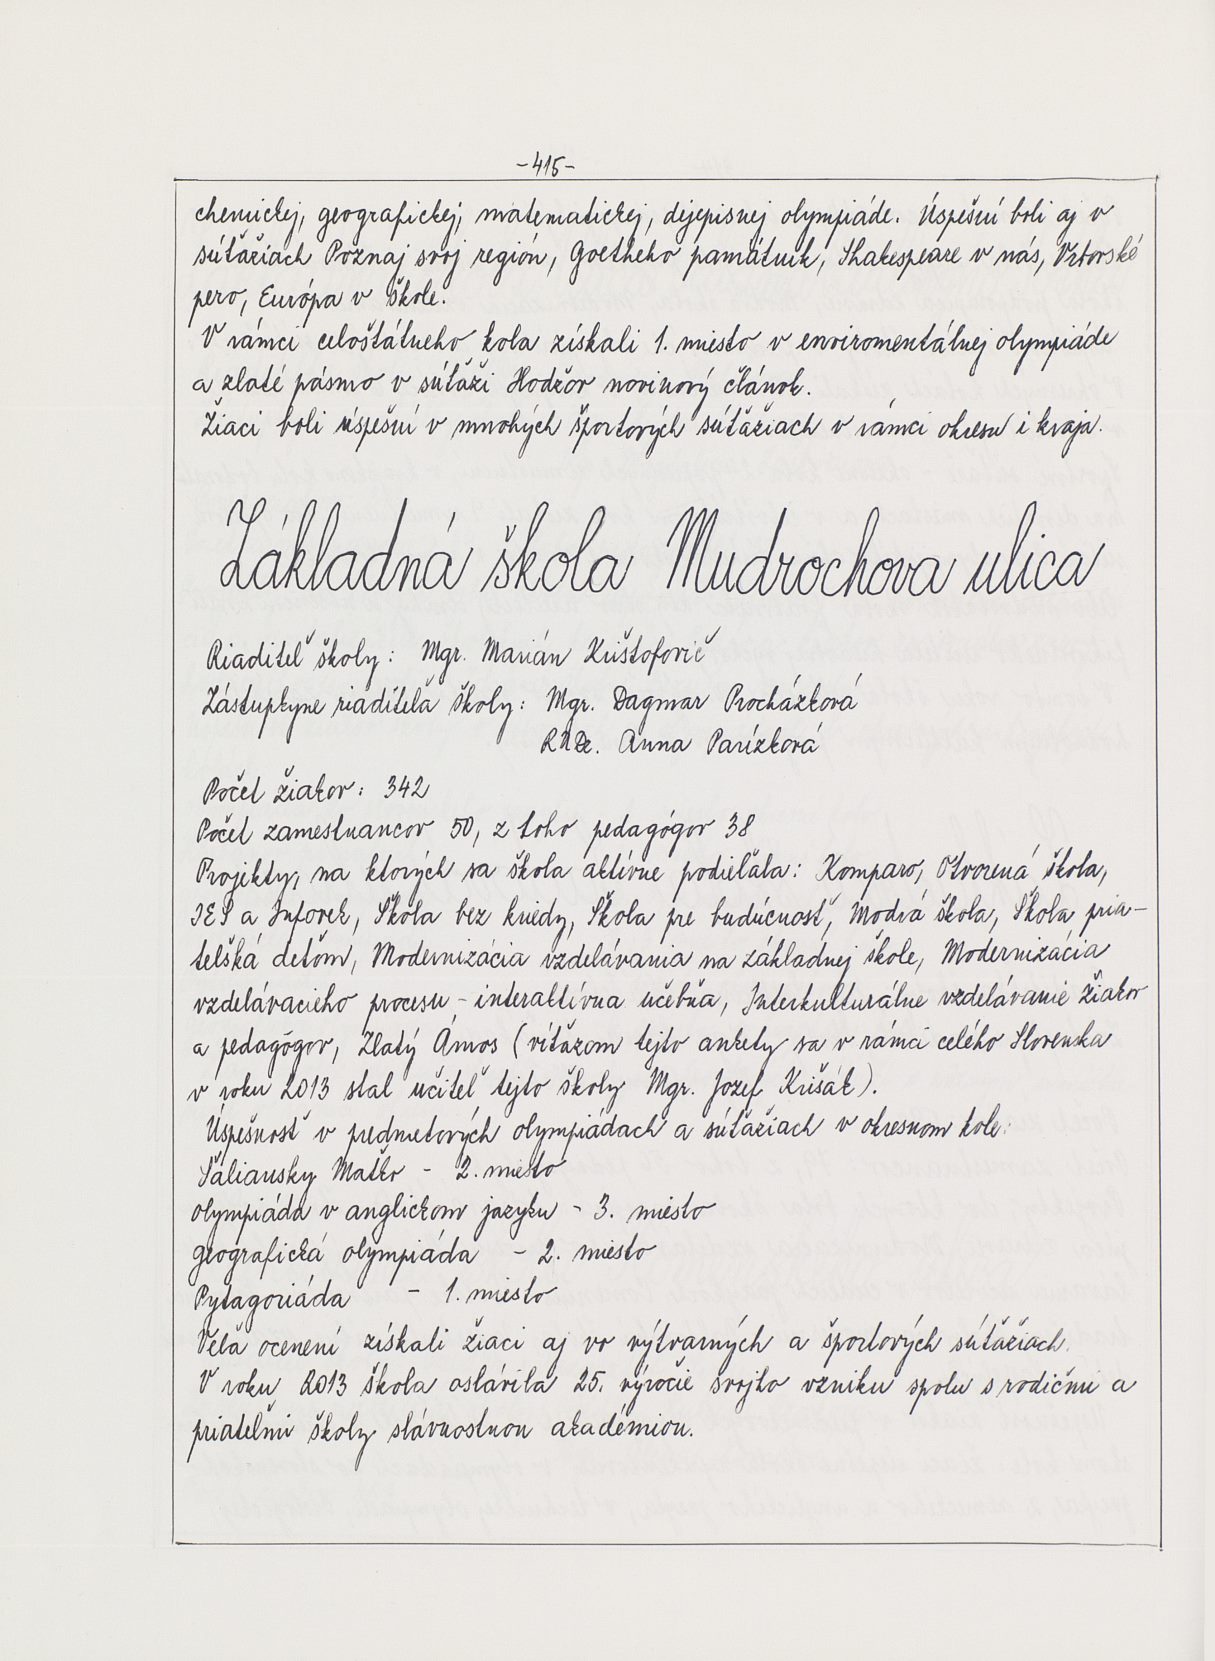 -415-
chemickej, geografickej, matematickej, dejepisnej olympiáde. Úspešní boli aj v
súťažiach Poznaj svoj región, Goetheho pamätník, Shakespeare v nás, Vrtovské
pero, Európa v škole.
V rámci celoštátneho kola získali 1. miesto v enviromentálnej olympiáde
a zlaté pásmo v súťaži Hodžov novinový článok.
Žiaci boli úspešní v mnohých športových súťažiach v rámci okresu i kraja.
Základná škola Mudrochova ulica
Riaditeľ školy: Mgr. Marián Krištofovič
Zástupkyne riaditeľa školy: Mgr. Dagmar Procházková
RNDr. Anna Parízková
Počet žiakov: 342
Počet zamestnancov 50, z toho pedagógov 38
Projekty, na ktorých sa škola aktívne podieľala: Komparo, Otvorená škola,
IES a Infovek, Škola bez kriedy, Škola pre budúcnosť, Modrá škola, Škola pria-
teľská deťom, Modernizácia vzdelávania na základnej škole, Modernizácia
vzdelávacieho procesu - interaktívna učebňa, Interkulturálne vzdelávanie žiakov
a pedagógov, Zlatý Ámos (víťazom tejto ankety sa v rámci celého Slovenska
v roku 2013 stal učiteľ tejto školy Mgr. Jozef Krišák).
Úspešnosť v predmetových olympiádach a súťažiach v okresnom kole:
Šaliansky Maťko - 2. miesto
olympiáda v anglickom jazyku - 3. miesto
geografická olympiáda - 2. miesto
Pytagoriáda - 1. miesto
Veľa ocenení získali žiaci aj vo výtvarných a športových súťažiach.
V roku 2013 škola oslávila 25. výročie svojho vzniku spolu s rodičmi a
priateľmi školy slávnostnou akadémiou.